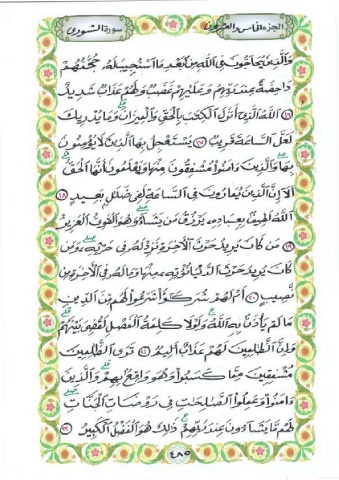 الجزء الخامس والعشرون
سورة الشورى
وَالَّذِينَ يُحَاجُّونَ فِي اللَّهِ مِنْ بَعْدِ مَا اسْتُجِيبَ لَهُ حُجَّتُهُمْ
دَاحِضَةٌ عِنْدَ رَبِّهِمْ وَعَلَيْهِمْ غَضَبٌ وَلَهُمْ عَذَابٌ شَدِيدٌ
١٦ اللَّهُ الَّذِي أَنْزَلَ الْكِتَبَ بِالْحَقِّ وَالْمِيزَانَ وَمَا يُدْرِيكَ
لَعَلَّ السَّاعَةَ قَرِيبٌ ١٧ يَسْتَعْجِلُ بِهَا الَّذِينَ لَا يُؤْمِنُونَ
بِهَا وَالَّذِينَ ءَامَنُوا مُشْفِقُونَ مِنْهَا وَيَعْلَمُونَ أَنَّهَا الْحَقُّ
أَلَا إِنَّ الَّذِينَ يُمَارُونَ فِي السَّاعَةِ لَفِي ضَلَلٍ بَعِيدٍ ١٨
اللَّهُ لَطِيفٌ بِعِبَادِهِ يَرْزُقُ مَنْ يَشَاءُ وَهُوَ الْقَوِيُّ الْعَزِيزُ
١٩ مَنْ كَانَ يُرِيدُ حَرْثَ الْآخِرَةِ نَزِدْ لَهُ فِي حَرْثِهِ وَمَنْ
كَانَ يُرِيدُ حَرْثَ الدُّنْيَا نُؤْتِهِ مِنْهَا وَمَا لَهُ فِي الْآخِرَةِ مِنْ
نَصِيبٍ ٢٠ أَمْ لَهُمْ شُرَكَؤُا شَرَعُوا لَهُمْ مِنَ الدِّينِ
مَا لَمْ يَأْذَنْ بِهِ اللَّهُ وَلَوْلَا كَلِمَةُ الْفَصْلِ لَقُضِيَ بَيْنَهُمْ
وَإِنَّ الظَّلِمِينَ لَهُمْ عَذَابٌ أَلِيمٌ ٢١ تَرَى الظَّلِمِينَ
مُشْفِقِينَ مِمَّا كَسَبُوا وَهُوَ وَاقِعٌ بِهِمْ وَالَّذِينَ
ءَامَنُوا وَعَمِلُوا الصَّلِحَاتِ فِي رَوْضَاتِ الْجَنَّاتِ
لَهُمْ مَا يَشَاءُونَ عِنْدَ رَبِّهِمْ ذَلِكَ هُوَ الْفَضْلُ الْكَبِيرُ ٢٢
٤٨٥